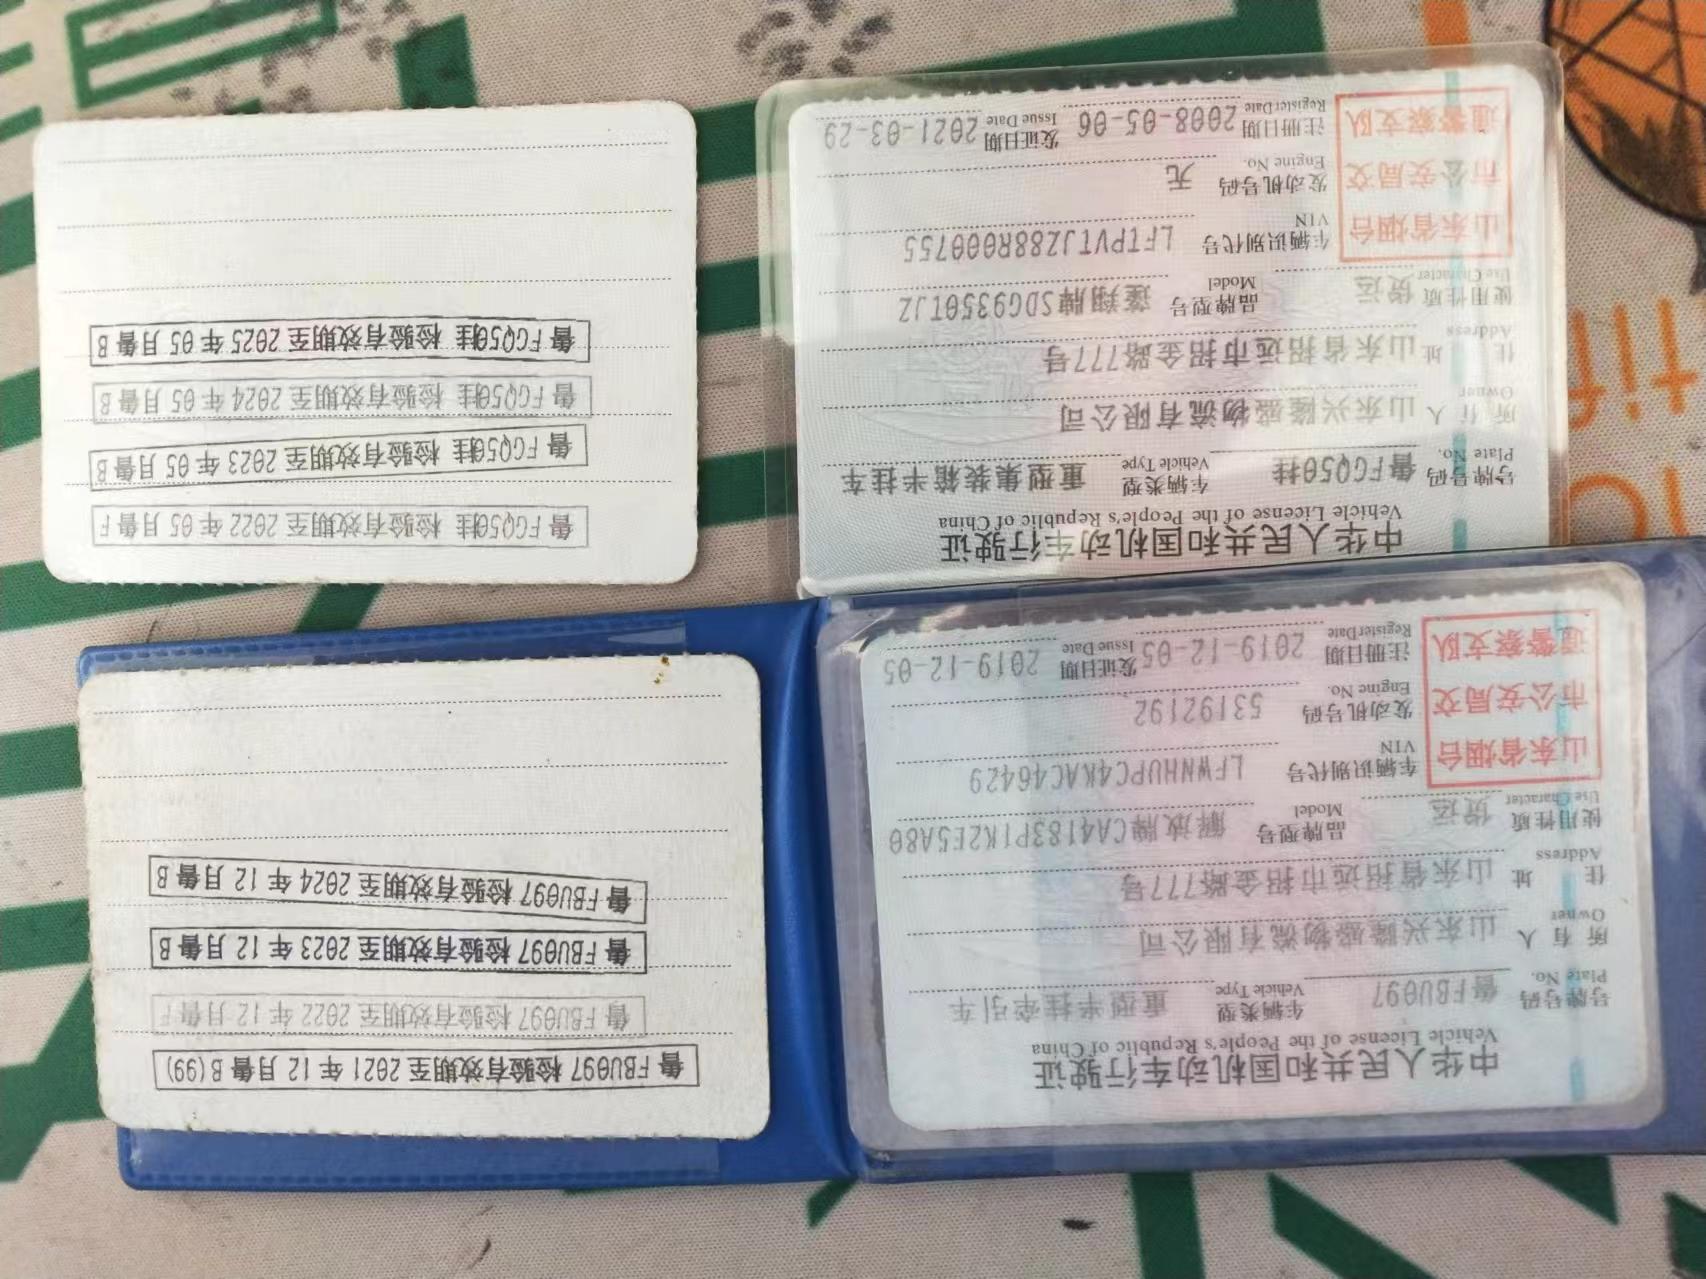 中华人民共和国机动车行驶证
Vehicle License of the People's Republic of China
号牌号码 鲁FBU097 车辆类型 重型半挂牵引车
Plate No. Vehicle Type
所有人 山东兴隆盛物流有限公司
Owner
住址 山东省招远市招金路777号
Address
使用性质 货运 品牌型号 解放牌CA4183P1K2E5A80
Use Character Model
山东省烟台
市公安局交
通警察支队
车辆识别代号 LFWNHUPC4KAC46429
VIN
发动机号码 53192192
Engine No.
注册日期 2019-12-05 发证日期 2019-12-05
Register Date Issue Date
鲁FBU097 检验有效期至 2021 年 12 月鲁 B(99)
鲁FBU097 检验有效期至 2022 年 12 月鲁F
鲁FBU097 检验有效期至 2023 年 12 月鲁 B
鲁FBU097 检验有效期至 2024 年 12 月鲁 B
中华人民共和国机动车行驶证
Vehicle License of the People's Republic of China
号牌号码 鲁FGQ50挂 车辆类型 重型集装箱半挂车
Plate No. Vehicle Type
所有人 山东兴隆盛物流有限公司
Owner
住址 山东省招远市招金路777号
Address
使用性质 货运 品牌型号 蓬翔牌SDG9350TJZ
Use Character Model
山东省烟台
市公安局交
通警察支队
车辆识别代号 LFTPVTJZ88R000755
VIN
发动机号码 无
Engine No.
注册日期 2008-05-06 发证日期 2021-03-29
Register Date Issue Date
鲁FGQ50挂 检验有效期至 2022 年 05 月鲁 F
鲁FGQ50挂 检验有效期至 2023 年 05 月鲁 B
鲁FGQ50挂 检验有效期至 2024 年 05 月鲁 B
鲁FGQ50挂 检验有效期至 2025 年 05 月鲁 B